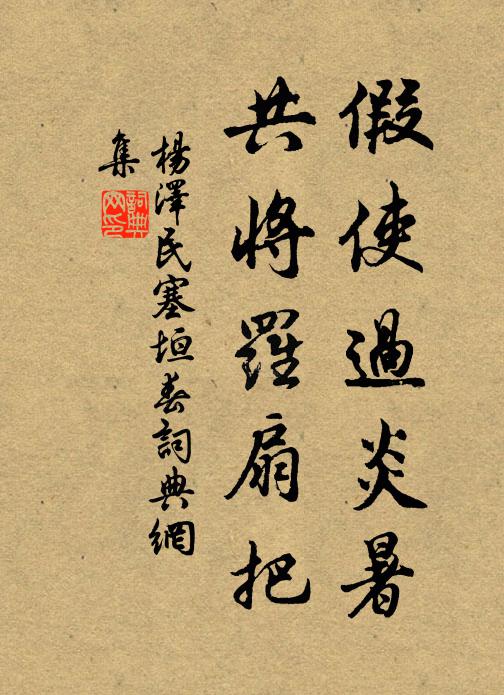 假使過炎暑
共將羅扇把
楊澤民塞垣春詞典網
集
詞典
网印